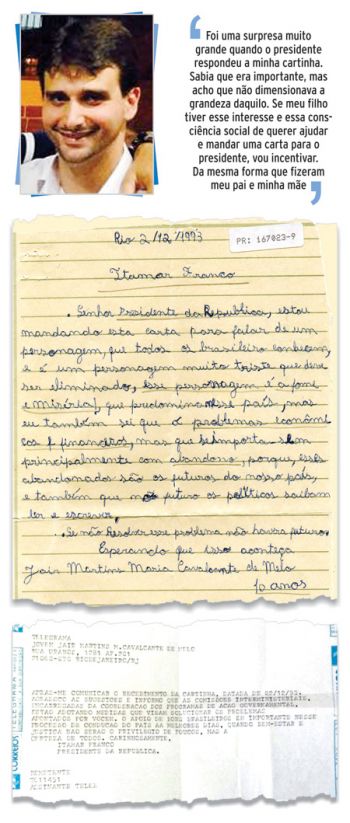 Foi uma surpresa muito
grande quando o presidente
respondeu a minha cartinha.
Sabia que era importante, mas
acho que não dimensionava a
grandeza daquilo. Se meu filho
tiver esse interesse e essa cons-
ciência social de querer ajudar
e mandar uma carta para o
presidente, vou incentivar.
Da mesma forma que fizeram
meu pai e minha mãe
Rio 2/12/1993
PR: 167023-9
Itamar Franco
Senhor Presidente da Republica, estou
mandando esta carta para falar de um
personagem, que todos os brasileiro conhecem,
e é um personagem muito triste que deve
ser eliminado, esse personagem é a fome
e miséria, que predomina nesse país, mas
eu também sei que a problemas econômi
cos e financeiros, mas que se importa
principalmente com abandono, porque, esses
abandonados são os futuros do nosso país,
e também que no futuro os políticos saibam
ler e escrever.
Se não Resolver esse problema não havera futuro.
Esperando que isso aconteça
Jair Martins Maria Cavalcante de Melo
10 anos
TELEGRAMA
JOVEM JAIR MARTINS M.CAVALCANTE DE MELO
RIODEJANEIRO/RJ
COMUNICAR O RECEBIMENTO DA CARTINHA, DATADA DE 02/12/93.
AGRADEÇO AS SUGESTOES E INFORMO QUE AS COMISSÕES INTERMINISTERIAIS,
ENCARREGADAS DA COORDENACAO DOS PROGRAMAS DE ACAO GOVERNAMENTAL,
ESTAO ADOTANDO MEDIDAS QUE VISAM SOLUCIONAR OS PROBLEMAS
APONTADOS POR VOCE. O APOIO DE BONS BRASILEIROS EH IMPORTANTE NESSE
PROCESSO DE CONDUCAO DO PAIS AA MELHORES DIAS, QUANDO BEM-ESTAR E
JUSTICA NAO SERAO O PRIVILEGIO DE POUCOS, MAS A
CERTEZA DE TODOS. CARINHOSAMENTE,
ITAMAR FRANCO
PRESIDENTE DA REPUBLICA.
REMETENTE
ASSINANTE TELEX
CORREIOS
TELEGRAMA